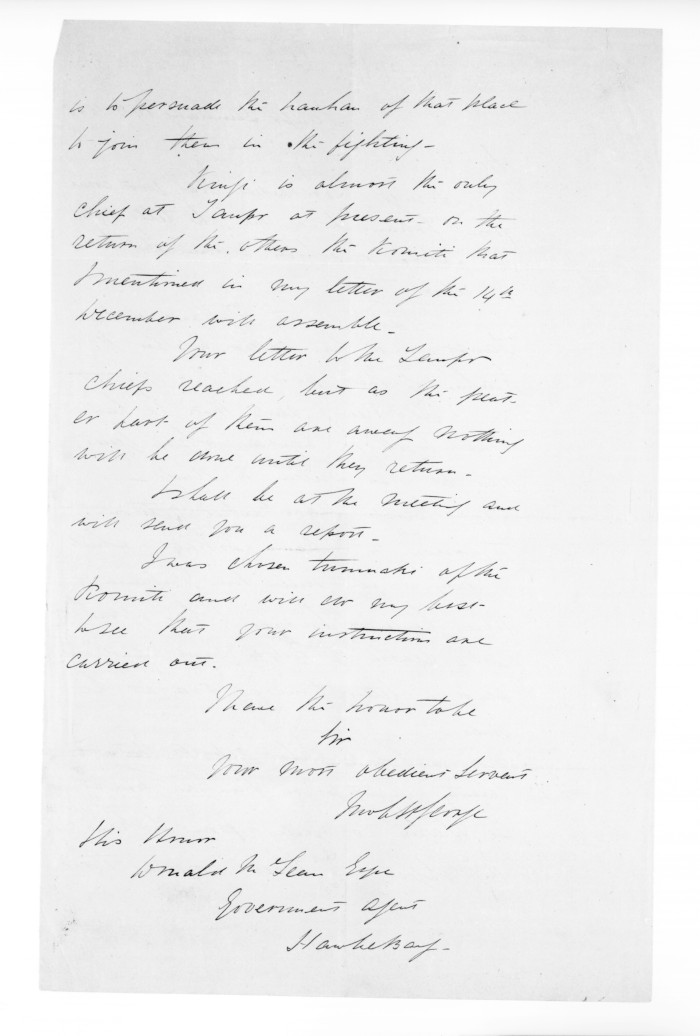 is to persuade the hauhau of that place
to join them in the fighting -
is almost the only
chief at Taupo at present - on the
return of the others the Komiti that
I mentioned in my letter of the 14th
December will assemble -
Your letter to the Taupo
chiefs reached, but as the great-
er part of them are away nothing
will be done until they return -
I shall be at the meeting and
will send you a report -
I was chosen tumuaki of the
Komiti and will do my best
to see that your instructions are
carried out.
I have the honor to be
Sir
Your most obedient Servant
His Honor
Donald McLean Esqr
Government Agent
Hawke Bay -